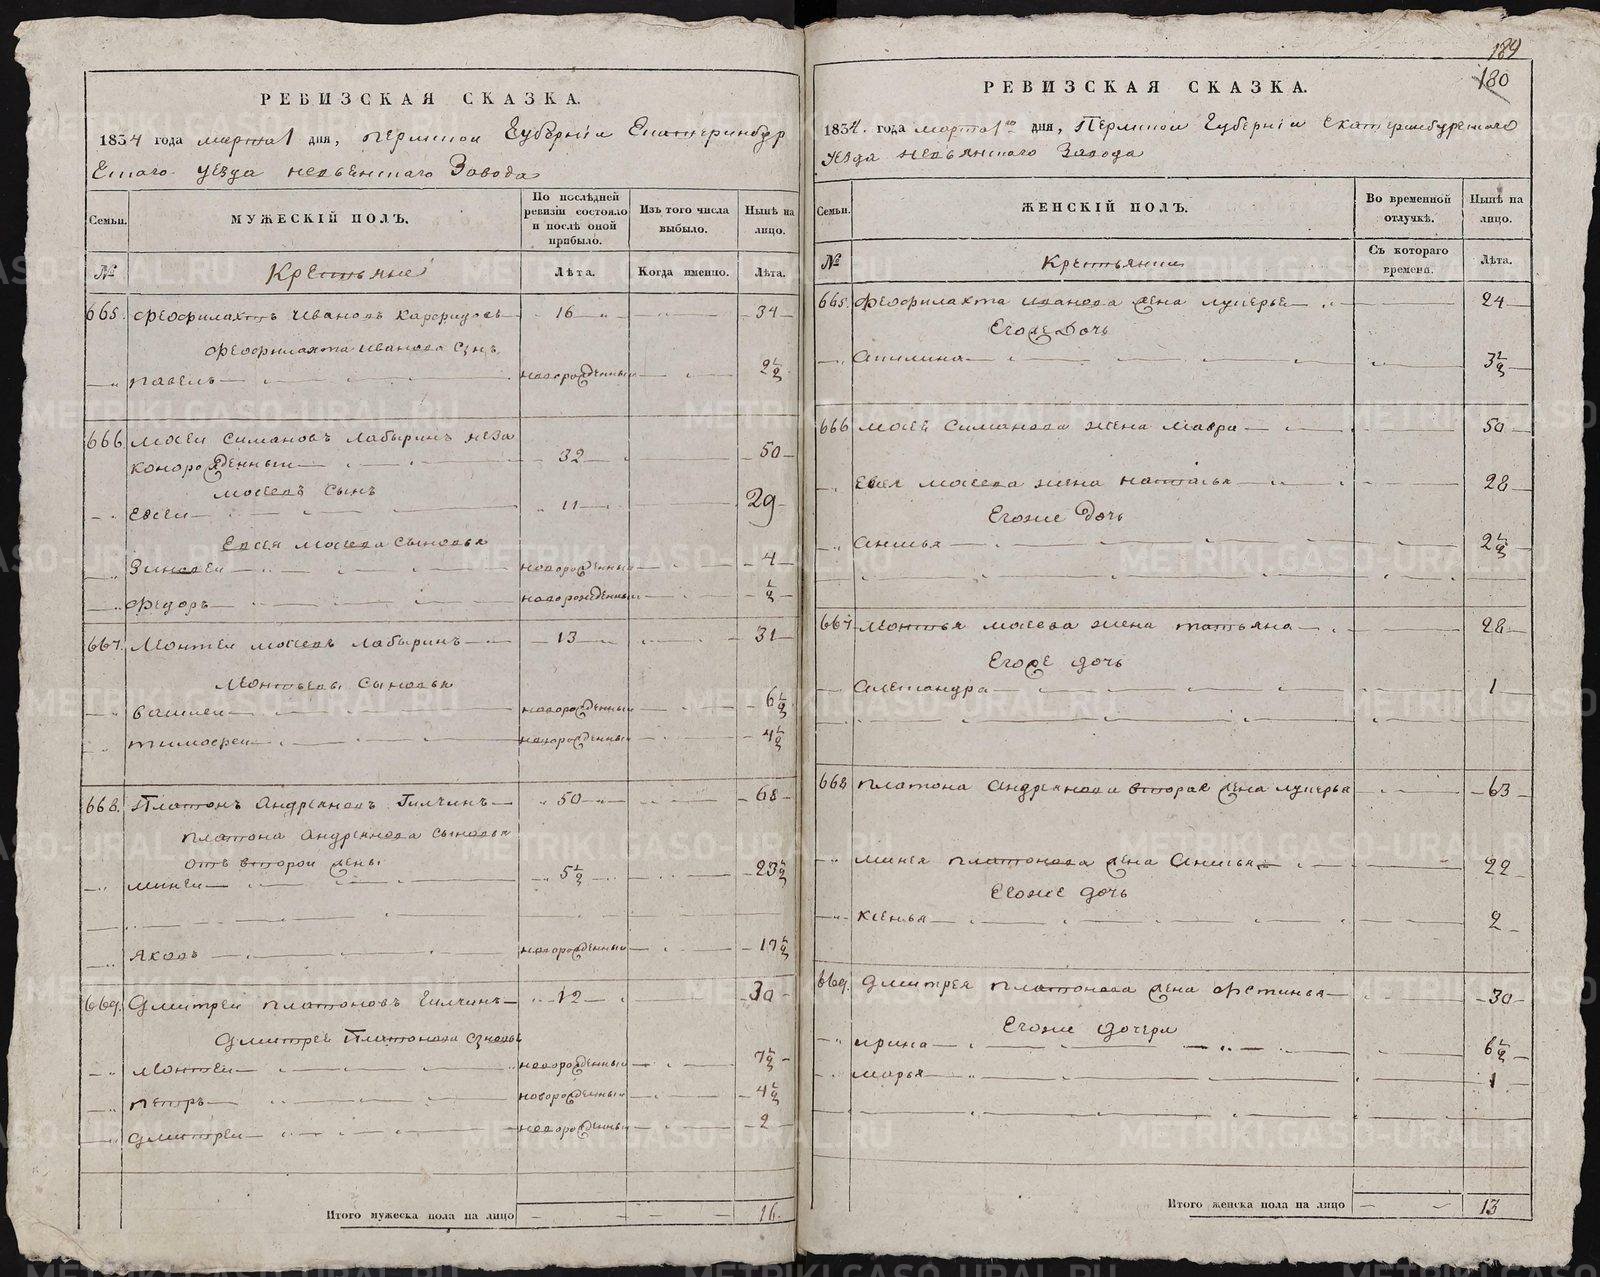 РЕВИЗСКАЯ СКАЗКА.
1834 года марта 1 дня, пермской Губернiи Екатеринбур
Ескаго уезда невьенскаго Завода
Семьи.
МУЖЕСКIЙ ПОЛЪ.
По последней ревизiи состояло и послѣ оной прибыло.
Изъ того числа выбыло.
Нынѣ на лицо.
№
Крестьяне
Лѣта.
Когда именно.
Лѣта.
665. Феофилактъ Ивановъ 16 34
Феофилакта Иванова Сынъ
павелъ новорожденный 2 1/2
666 Мосей Симановъ Лабыринъ неза
конорожденный 32 50
мосеевъ Сынъ
Евсей 11 29
Евсея Мосеева Сыновья
Зиновей новорожденный 4
Федоръ новорожденный 1/2
667. Монтей мосеевъ Лабыринъ 13 31
Монтеевы Сыновья
василей новорожденный 6 1/2
тимофей новорожденный 4 1/2
668. Платонъ Андреяновъ Гилчинъ 50 68
Платона Андреянова Сыновья
отъ второй жены
миней 5 1/2 23 1/2
яковъ новорожденный 17 1/2
669. Дмитрей платоновъ Гилчинъ 12 30
Дмитрея Платонова Сыновья
Монтей новорожденный 7 1/2
петръ новорожденный 4 1/2
Дмитрей новорожденный 2
Итого мужеска пола на лицо 16.
189
180
РЕВИЗСКАЯ СКАЗКА.
1834. года марта 1го дня, Пермской Губернiи Екатеринбурскаго
уезда невьянскаго Завода
Семьи.
ЖЕНСКIЙ ПОЛЪ.
Во временной отлучкѣ.
Нынѣ на лицо.
№
Крестьянки
Съ котораго времени.
Лѣта.
665. Феофилакта Иванова жена лукерья 24
Егоже Дочь
Акилина 3 1/2
666 Мосея Симанова жена Мавра 50
Евсея мосеева жена наталья 28
Егоже Дочь
Анисья 2 1/2
667 Монтея мосеева жена татьяна 28
Егоже дочь
Александра 1
668 платона Андреянова вторая жена лукерья 63
минея платонова жена Анисья 22
Егоже дочь
Ксенья 2
669. Дмитрея платонова жена Фетинья 30
Егоже дочери
Ирина 6 1/2
марья 1
Итого женска пола на лицо 13
METRIKI.GASO-URAL.RU